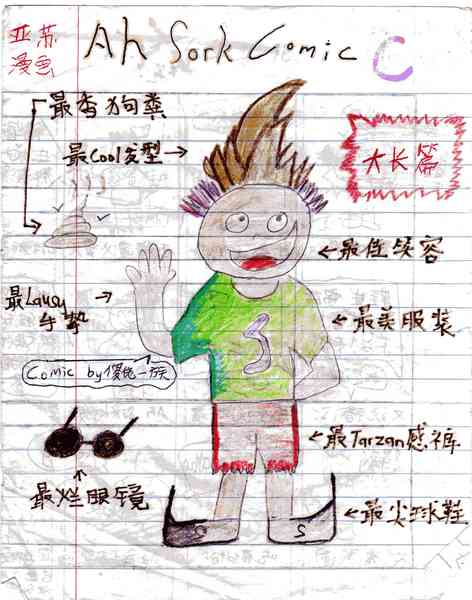 亚苏
漫画
Ah Sork Comic C
最香狗粪
最Cool发型
大长篇
最佳笑容
最Lansy
手势
最美服装
Comic by傻兔一族
最Tarzan感裤
最烂眼镜
最尖球鞋
S